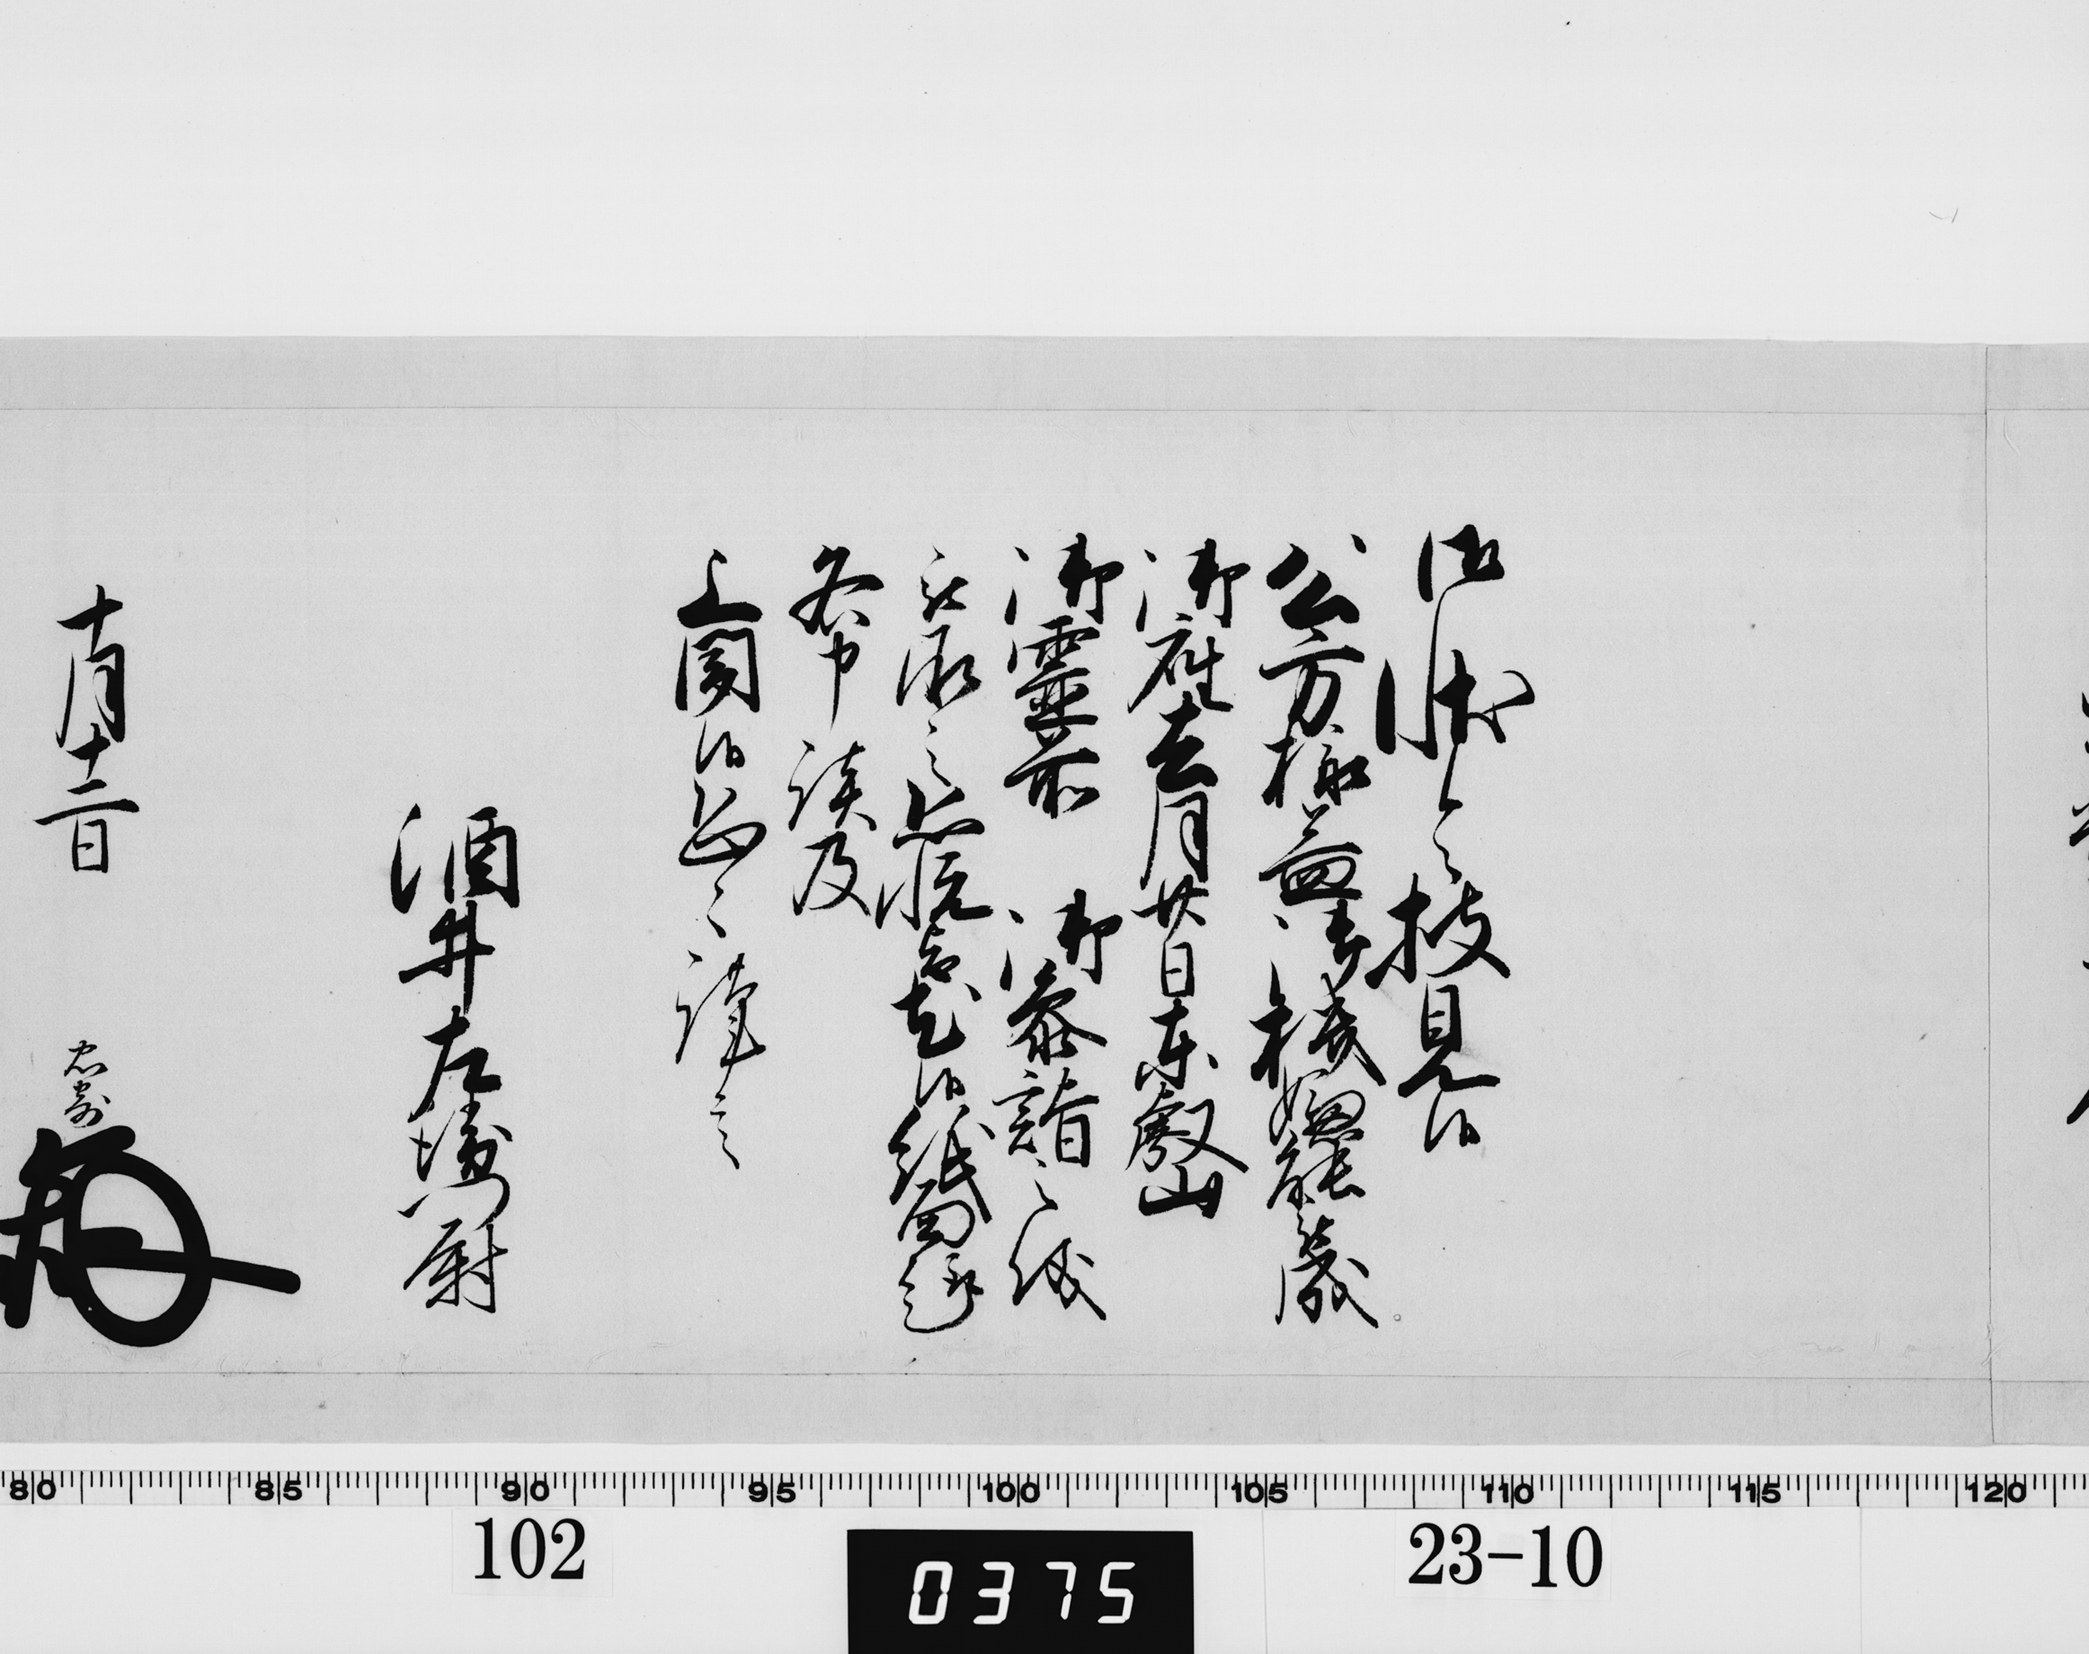 御状令披見候
公方様益御機嫌能被成
御座去月廿日東叡山
御霊前　御参詣之儀
被承之恐悦旨尤候紙面趣
各申談及
上聞候恐々謹言
酒井左衛門尉
十月十二日
忠寄
80 85 90 95 100 105 110 115 120
102
0375
23-10